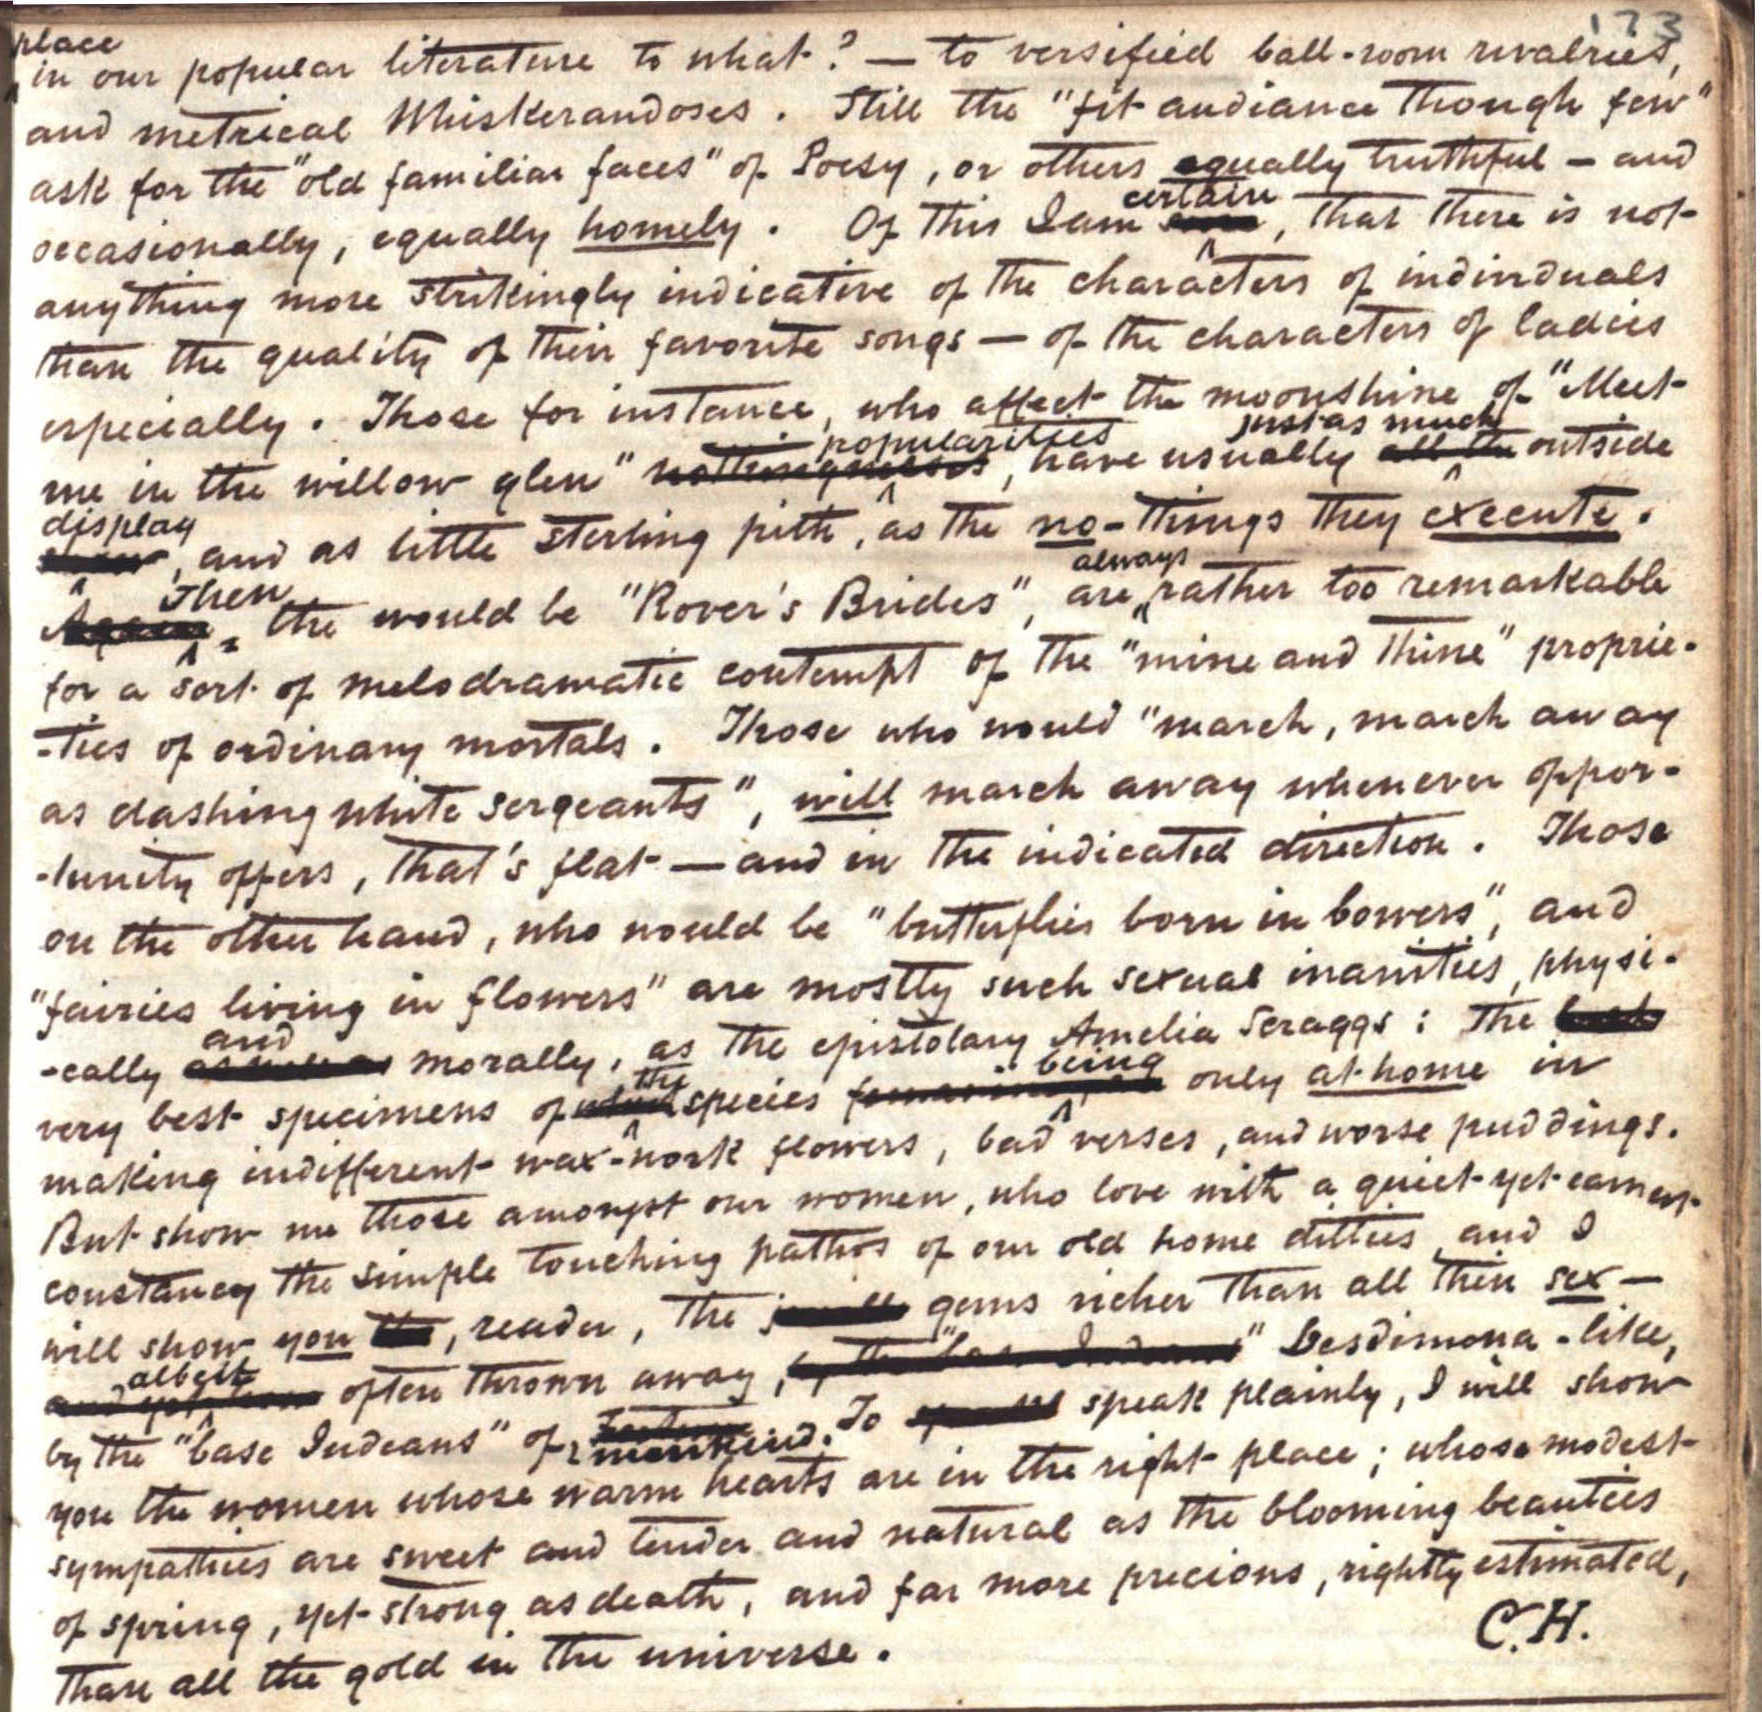 173
place
in our popular literature to what? — to versified ball-room rivalries,
and metrical Whiskerandoses. Still the "fit audiance though few"
ask for the "old familiar faces" of Poesy, or others equally truthful — and
certain
occasionally, equally homely. Of this I am , that there is not
anything more strikingly indicative of the characters of individuals
than the quality of their favorite songs — of the characters of ladies
especially. Those for instance, who affect the moonshine of "Meet
popularities just as much
me in the willow glen" nothingnesses, have usually all the outside
display
, and as little sterling pith, as the no-things they execute.
Then always
Again, the would be "Rover's Brides", are rather too remarkable
for a sort of melodramatic contempt of the "mine and thine" proprie-
-ties of ordinary mortals. Those who would "march, march away
as dashing white sergeants", will march away whenever oppor-
-tunity offers, that's flat — and in the indicated direction. Those
on the other hand, who would be "butterflies born in bowers", and
"fairies living in flowers" are mostly such sexual inanities, physi-
and
-cally as well as morally, as the epistolary Amelia Scraggs: the
the being
very best specimens of species only at home in
making indifferent wax-work flowers, bad verses, and worse puddings.
But show me those amongst our women, who love with a quiet yet earnest
constancy the simple touching pathos of our old home ditties, and I
will show you , reader, the gems richer than all their sex —
albeit
and yet often thrown away, by the "base Indians" Desdimona-like,
by the "base Indeans" of mankind. To speak plainly, I will show
you the women whose warm hearts are in the right place; whose modest
sympathies are sweet and tender and natural as the blooming beauties
of spring, yet strong as death, and far more precious, rightly estimated,
than all the gold in the universe.
C.H.